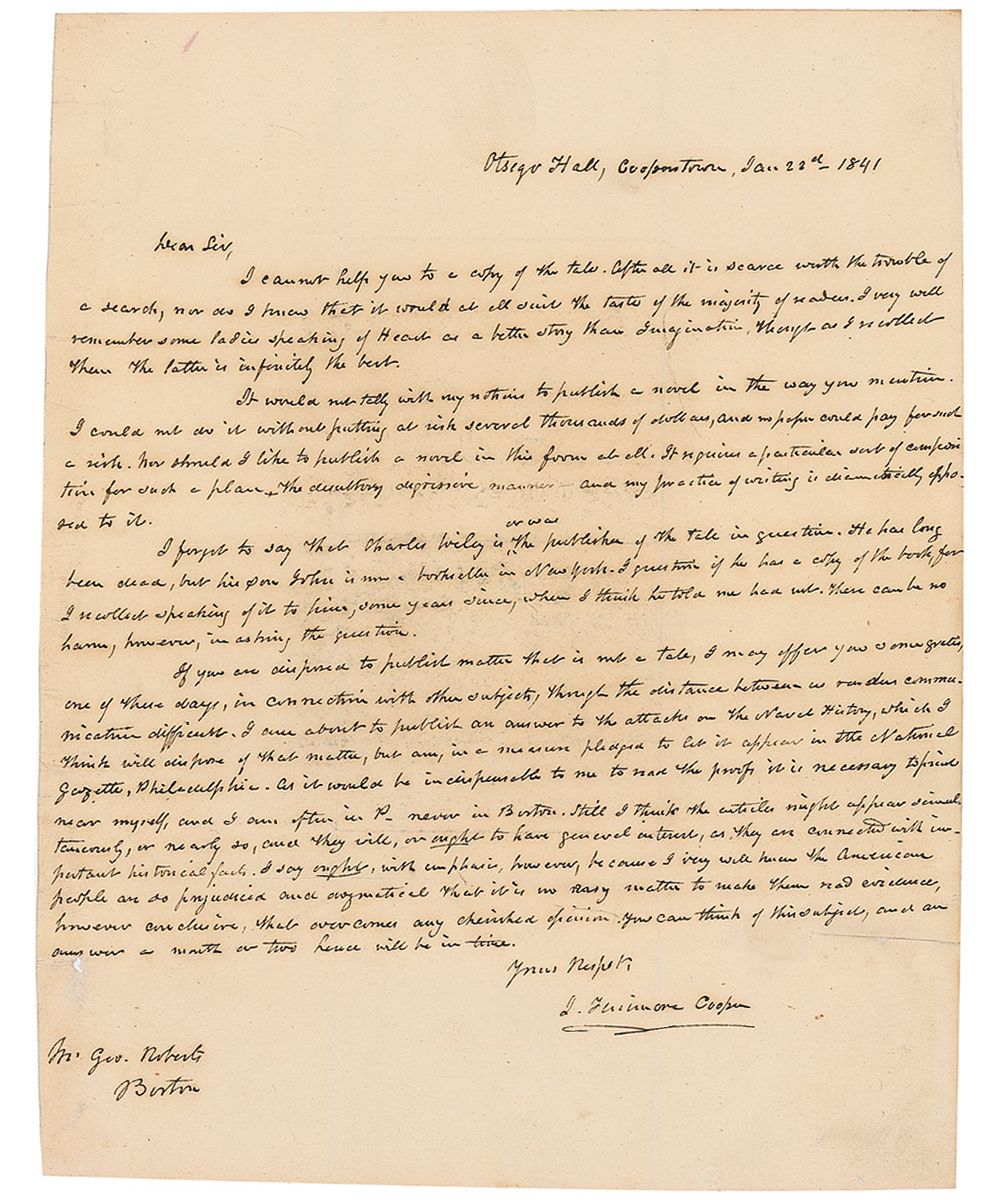 Otsego Hall, Cooperstown, Jan 22d 1841
Dear Sir,
I cannot help you to a copy of the tale. After all it is scarce worth the trouble of
a search, nor do I know that it would at all suit the taste of the majority of readers. I very well
remember some ladies speaking of Heart as a better story than Imagination, though as I recollect
them the latter is infinitely the best.
It would not tally with my notions to publish a novel in the way you mention.
I could not do it without putting at risk several thousands of dollars, and no paper could pay for such
a risk. Nor should I like to publish a novel in this form at all. It requires a particular sort of composi-
tion for such a plan, the desultory digressive manner - and my practice of writing is diametrically oppo-
sed to it.
or was
I forgot to say that Charles Wiley is the publisher of the tale in question. He has long
been dead, but his son John is now a bookseller in New York. I question if he has a copy of the book, for
I recollect speaking of it to him, some years since, when I think he told me had not. There can be no
harm, however, in asking the question.
If you are disposed to publish matter that is not a tale, I may offer you some gratis,
one of these days, in connection with other subjects, though the distance between us renders commu-
nication difficult. I am about to publish an answer to the attacks on the Naval History, which I
think will dispose of that matter, but am, in a measure pledged to let it appear in the National
Gazette, Philadelphia. As it would be indispensable to me to read the proofs it is necessary to print
near myself, and I am often in P- never in Boston. Still I think the articles might appear simul-
taneously, or nearly so, and they will, or ought to have general interest, as they are connected with im-
portant historical facts. I say ought, with emphasis, however, because I very well know the American
people are so prejudiced and dogmatical that it is no easy matter to make them read evidence,
however conclusive, that overcomes any cherished opinion. You can think of this subject, and an
answer a month or two hence will be in time.
Yours Respt.
J. Fenimore Cooper
Mr. Geo. Roberts
Boston